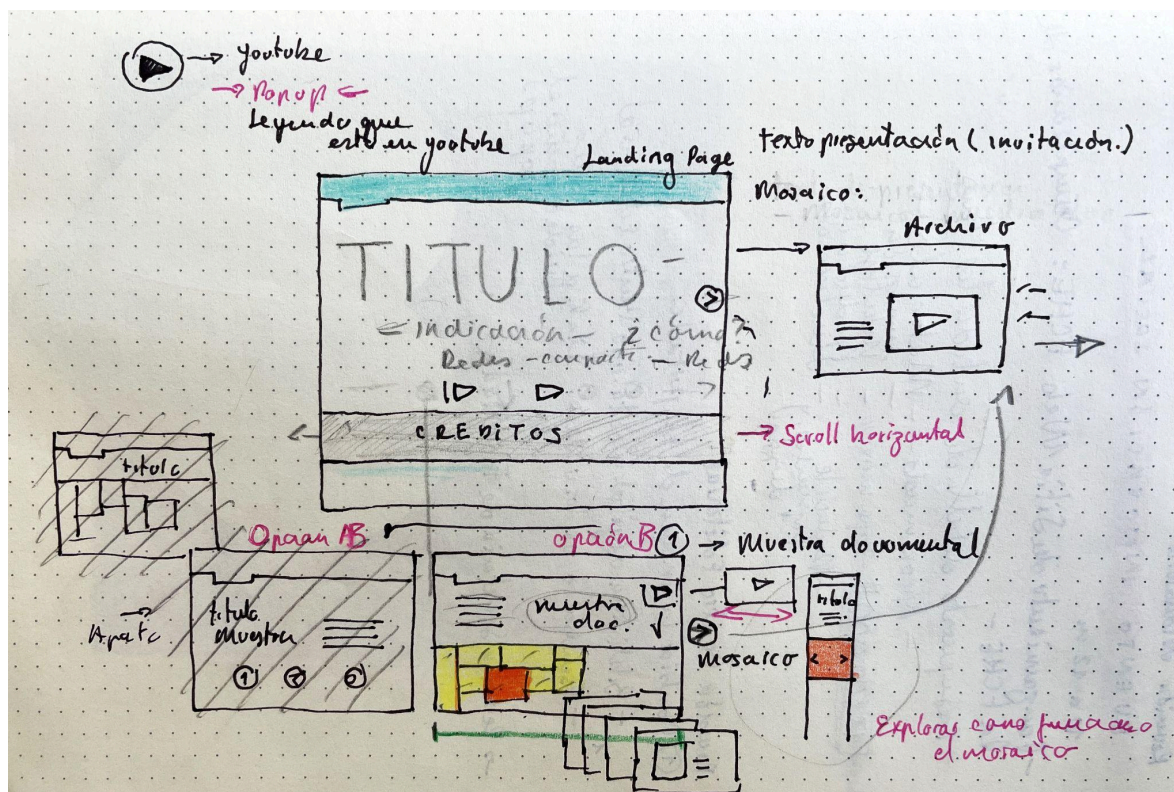 → youtube
→ Popup ←
Leyenda que
esta en youtube
Landing Page
texto presentación (invitación.)
Mosaico:
Archivo
TITULO
indicación — ¿cómo?
Redes — — Redes
CREDITOS
→ Scroll horizontal
titulo
Opcion AB
opciónB ① → Muestra documental
titulo
muestra
① ② ③
muestra
doc.
mosaico
titulo
< >
Explorar como funciona
el mosaico